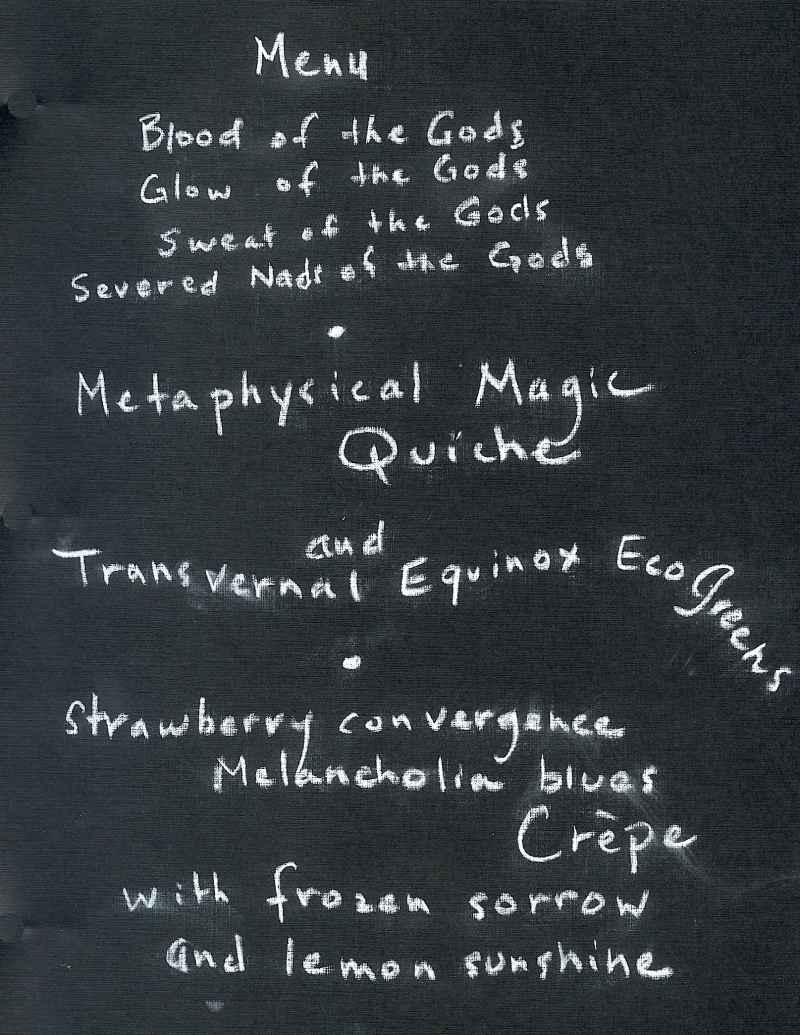 Menu
Blood of the Gods
Glow of the Gods
Sweat of the Gods
Severed Nads of the Gods
•
Metaphysical Magic
Quiche
and
Transvernal Equinox EcoGreens
•
Strawberry convergence
Melancholia blues
Crèpe
with frozen sorrow
and lemon sunshine